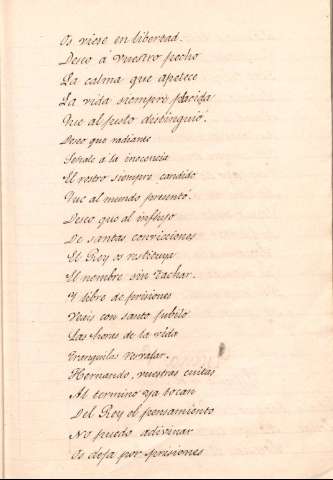 Os viese en libertad.
Deseo á vuestro pecho
La calma que apetece
La vida siempre placida
Que al justo distinguió.
Deseo que radiante
Señale á la inocencia
El rostro siempre candido
Que al mundo presentó.
Deseo que al influjo
De santas convicciones
El Rey os restituya
El nombre sin tachar.
Y libre de prisiones
Veais con santo jubilo
Las horas de la vida
Tranquilas resvalar.
Hernando, vuestras cuitas
Al termino ya tocan
Del Rey el pensamiento
No puedo adivinar
Os deja por prisiones